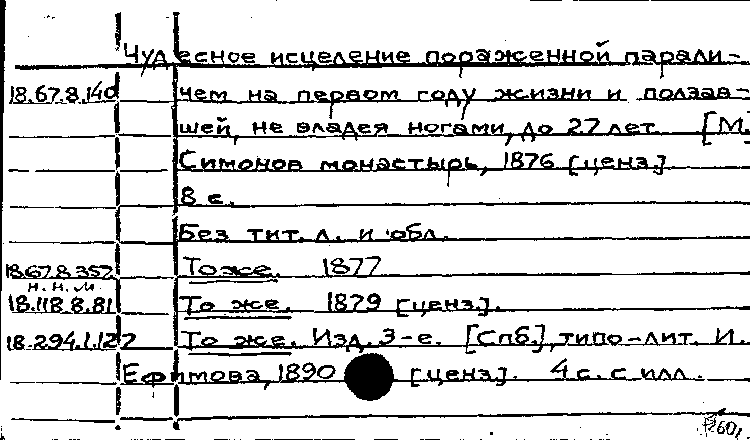 Чудесное исцеление пораженной парали-
18.67.8.140 чем на первом году жизни и ползав-
шей, не владея ногами, до 27 лет. [М.]
Симонов монастырь, 1876 [ценз.].
8 с.
Без тит. л. и обл.
18.67.8.352 То же. 1877
н.н.м.
18.118.8.81 То же. 1879 [ценз.].
18.294.1.127 То же. Изд. 3-е. [Спб.], типо-лит. И.
Ефимова, 1890 [ценз]. 4 с. с илл.